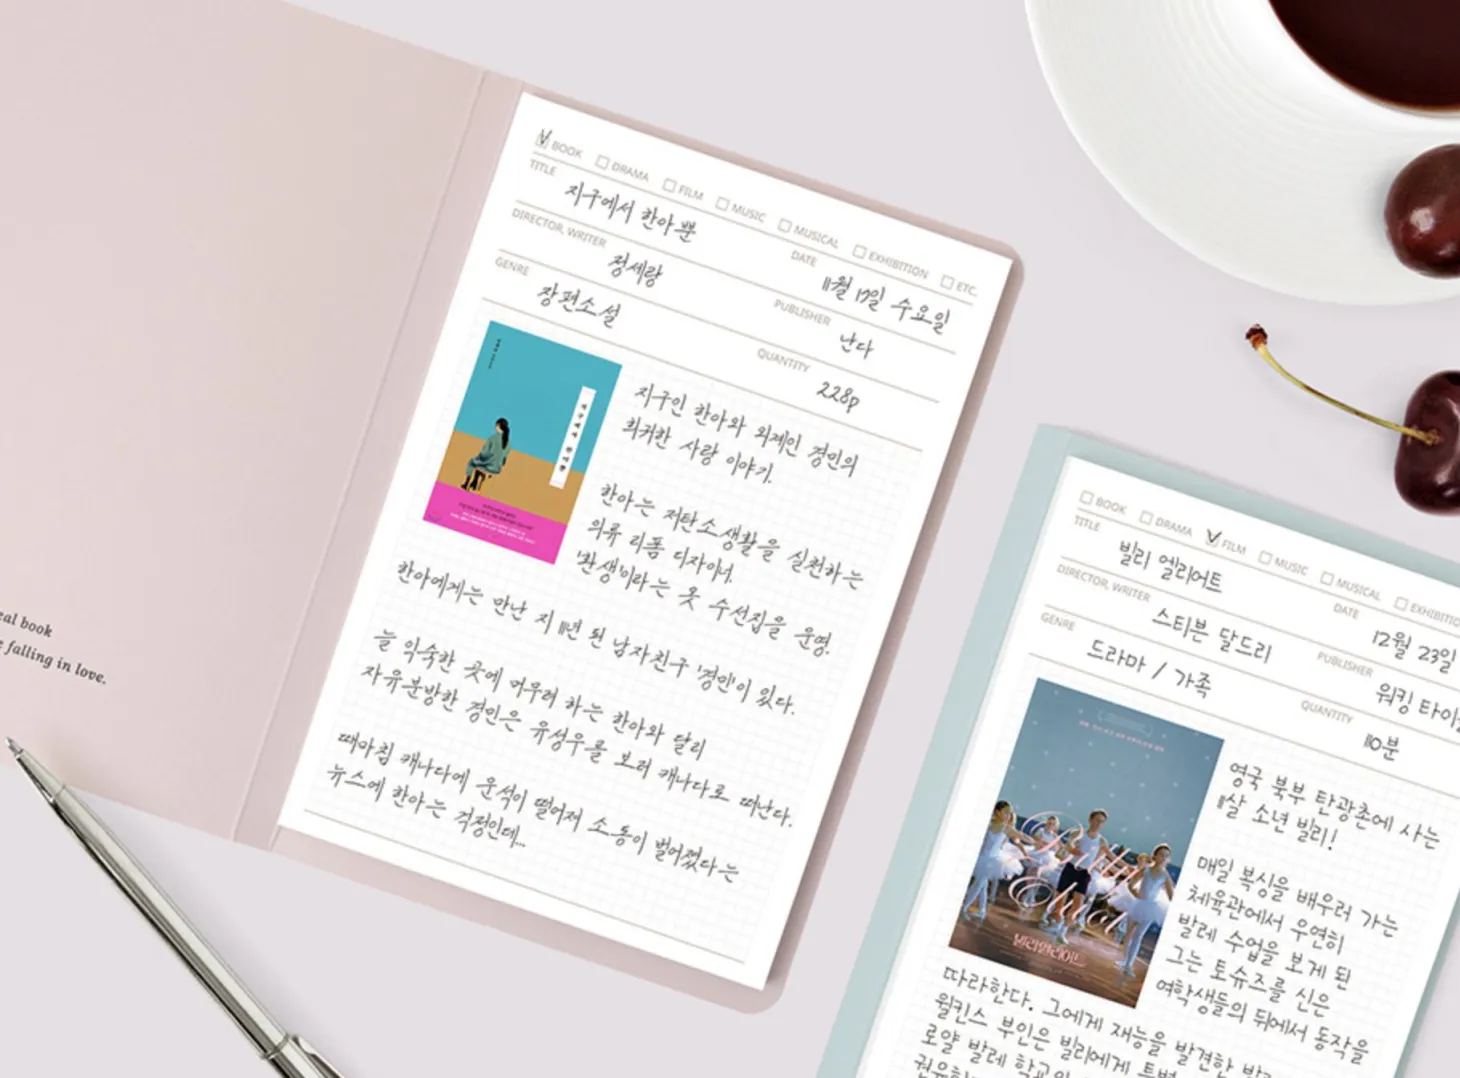 eal book
e falling in love.
BOOK DRAMA FILM MUSIC MUSICAL EXHIBITION ETC.
TITLE
지구에서 한아뿐
DATE
11월 17일 수요일
DIRECTOR, WRITER
정세랑
PUBLISHER
난다
GENRE
장편소설
QUANTITY
228p
지구에서 한아뿐
지구인 한아와 외계인 경민의
희귀한 사랑 이야기.
한아는 저탄소생활을 실천하는
의류 리폼 디자이너.
'환생'이라는 옷 수선집을 운영.
한아에게는 만난 지 11년 된 남자친구 '경민'이 있다.
늘 익숙한 곳에 머무려 하는 한아와 달리
자유분방한 경민은 유성우를 보러 캐나다로 떠난다.
때마침 캐나다에 운석이 떨어져 소동이 벌어졌다는
뉴스에 한아는 걱정인데...
BOOK DRAMA FILM MUSIC MUSICAL EXHIBITIO
TITLE
빌리 엘리어트
DATE
12월 23일
DIRECTOR, WRITER
스티븐 달드리
PUBLISHER
워킹 타이
GENRE
드라마 / 가족
QUANTITY
110분
빌리 엘리어트
영국 북부 탄광촌에 사는
11살 소년 빌리!
매일 복싱을 배우러 가는
체육관에서 우연히
발레 수업을 보게 된
그는 토슈즈를 신은
여학생들의 뒤에서 동작을
따라한다. 그에게 재능을 발견한
윌킨스 부인은 빌리에게
로얄 발레